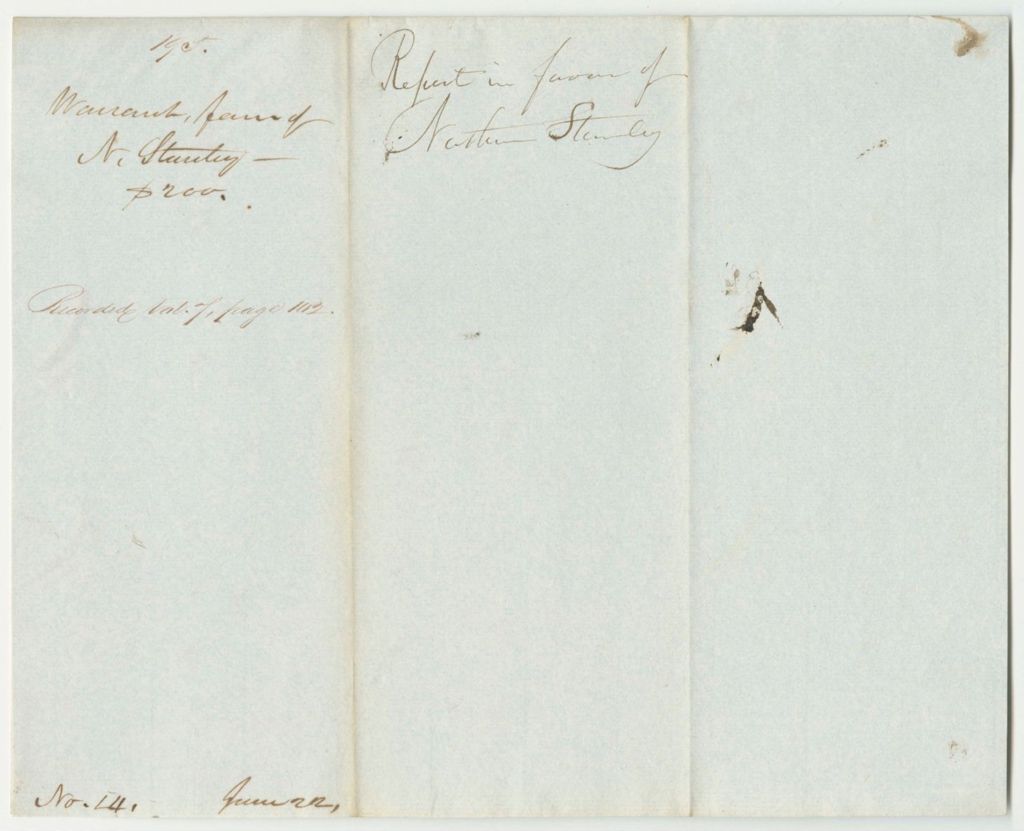 195.
Warrant, favor of
N. Stanley —
$200.
Recorded Vol. 7, page 112.
No. 14. June 22,
Report in favor of
Nathan Stanley